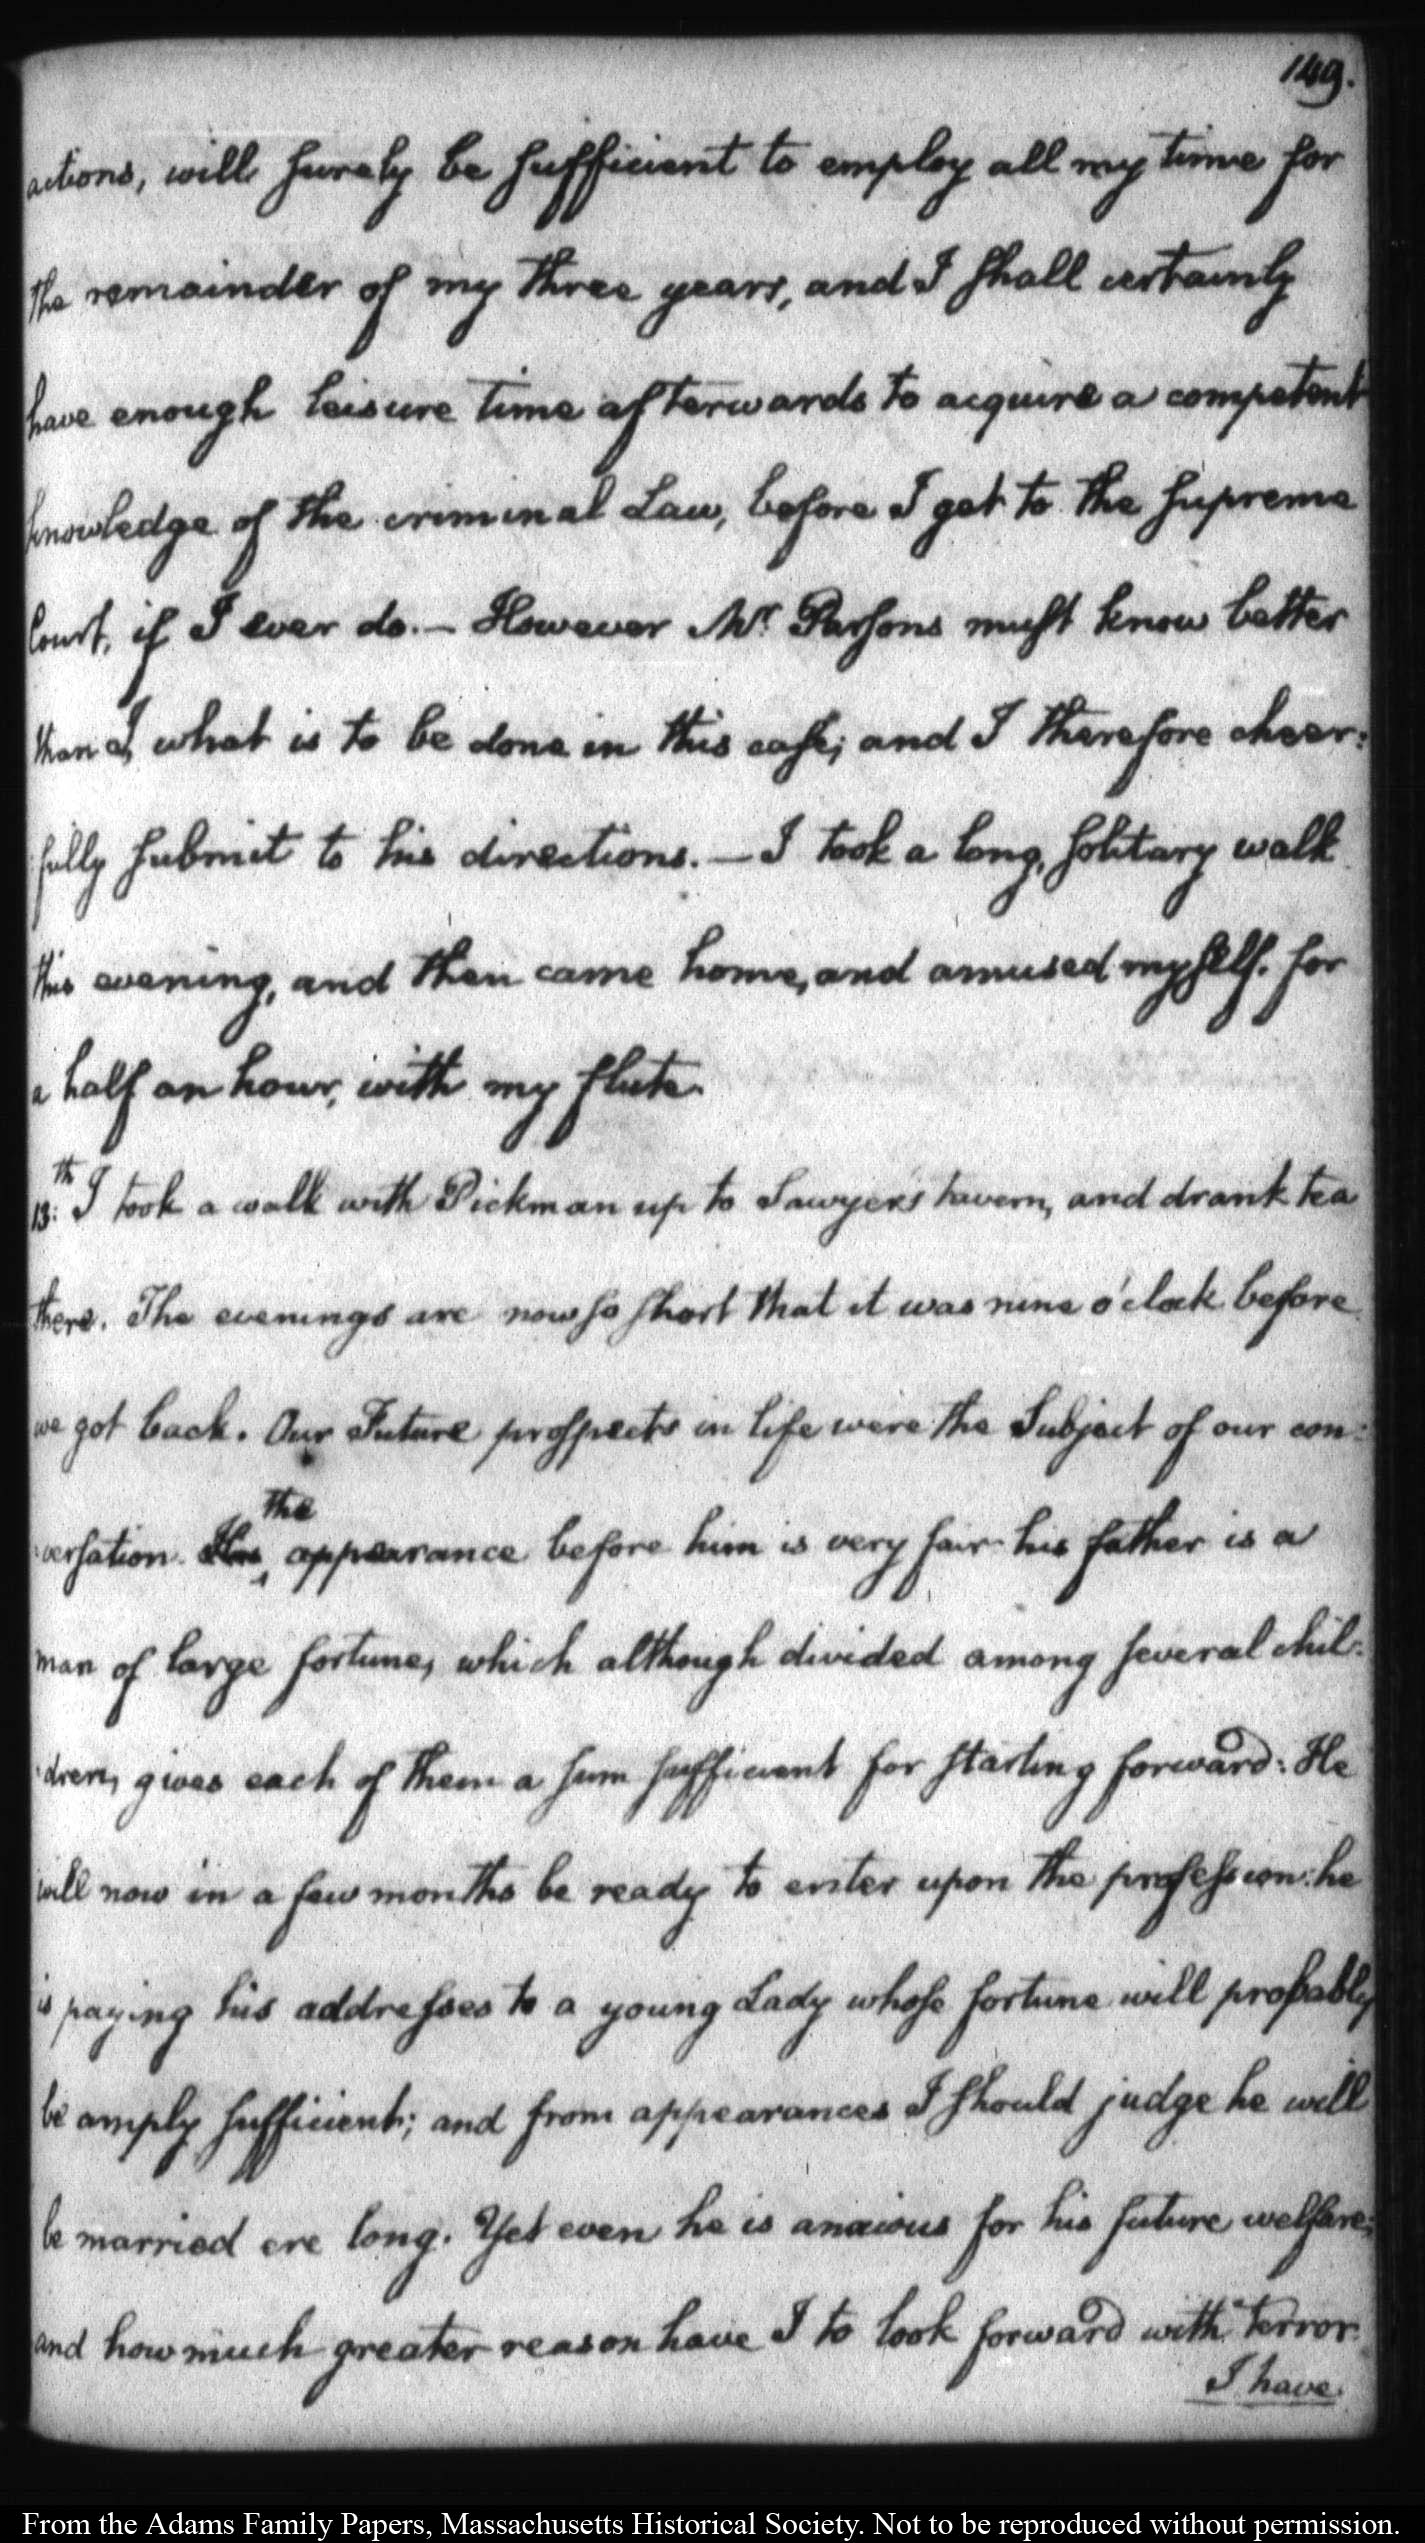 149.
actions, will surely be sufficient to employ all my time for
the remainder of my three years, and I shall certainly
have enough leisure time afterwards to acquire a competent
knowledge of the criminal Law, before I get to the supreme
Court, if I ever do. — However Mr. Parsons must know better
than I, what is to be done in this case; and I therefore cheer:
fully submit to his directions. — I took a long, solitary walk
this evening, and then came home, and amused myself. for
a half an hour, with my flute.
13:th I took a walk with Pickman up to Sawyer's tavern, and drank tea
there. The evenings are now so short that it was nine o'clock before
we got back. Our Future prospects in life were the Subject of our con:
the
:versation. His appearance before him is very fair his father is a
man of large fortune, which although divided among several chil:
:dren, gives each of them a sum sufficient for starting forward: He
will now in a few months be ready to enter upon the profession: he
is paying his addresses to a young Lady whose fortune will probably
be amply sufficient; and from appearances I should judge he will
be married ere long. Yet even he is anxious for his future welfare;
and how much greater reason have I to look forward with terror.
I have
From the Adams Family Papers, Massachusetts Historical Society. Not to be reproduced without permission.